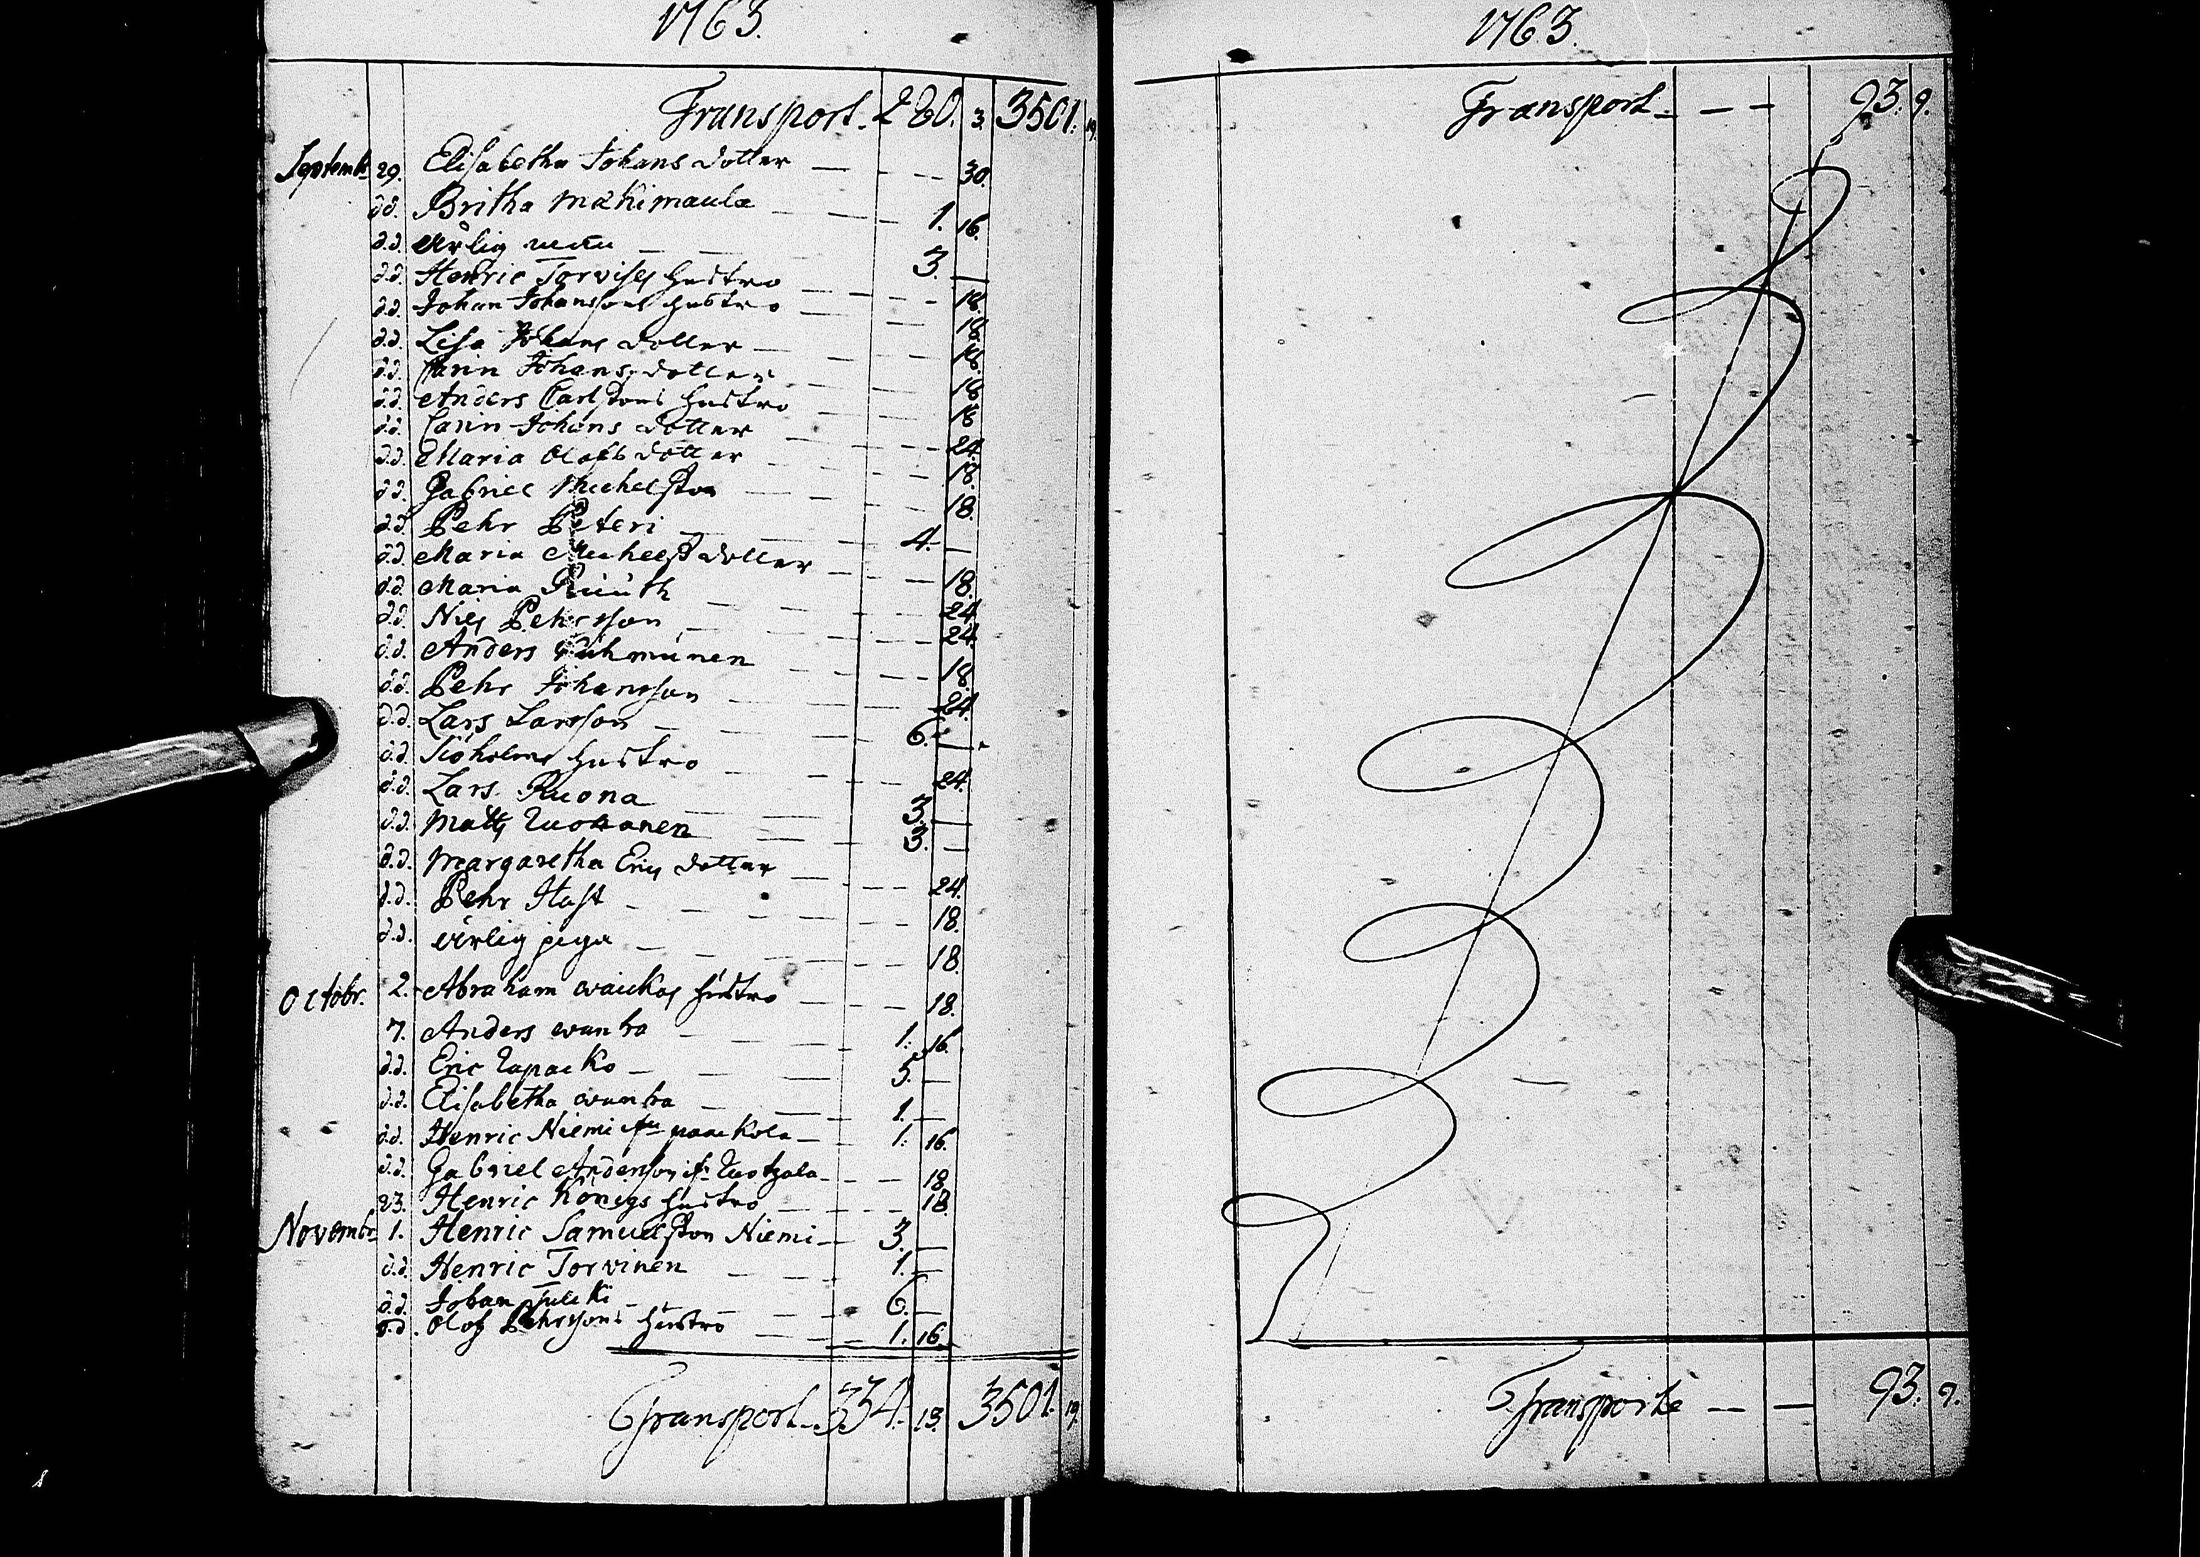 1763.
Transport. 280. 3. 3501. 19.
Septemb. 29. Elisabetha Johans dotter — — — 30.
d.d. Britha Mäkimaula — — — 1. 16.
d.d. ärlig man — — — 3. —
d.d. Henric Torvises hustro — — — 18.
d.d. Johan Johanssons hustro — — — 18.
d.d. Lisa Johans dotter — — — 18.
d.d. Carin Johans dotter — — — 18.
d.d. Anders Carlssons hustro — — — 18.
d.d. Carin Johans dotter — — — 24.
d.d. Maria Olofs dotter — — — 18.
d.d. Gabriel Michelsson — — — 18.
d.d. Pehr Peteri — — — 4. —
d.d. Maria Michelsdotter — — — 18.
d.d. Maria — — — 24.
d.d. Nils Pehrsson — — — 24.
d.d. Anders — — — 18.
d.d. Pehr Johansson — — — 24.
d.d. Lars Larsson — — — 6. —
d.d. Siöholms hustro — — — 24.
d.d. Lars Ruona — — — 3. —
d.d. Matts — — — 3. —
d.d. Margaretha Erics dotter — — — 24.
d.d. Pehr Hast — — — 18.
d.d. ärlig piga — — — 18.
Octobr. 2. Abraham hustro — — — 18.
7. Anders wanha — — — 1. 16.
d.d. Eric Lapacko — — — 5. —
d.d. Elisabetha wanha — — — 1. —
d.d. Henric Niemi ifrn — 1. 16.
d.d. Gabriel Andersson ifr. — — — 18.
23. Henric Königs hustro — — — 18.
Novembr. 1. Henric Samuelsson Niemi — 3. —
d.d. Henric Torvinen — — — 1. —
d.d. Johan — — — 6. —
d.d. Olof Pehrssons hustro — — — 1. 16.
Transport. 334. 13. 3501. 19.
1763.
Transport — — — 93. 9.
Transporte — — 93. 9.